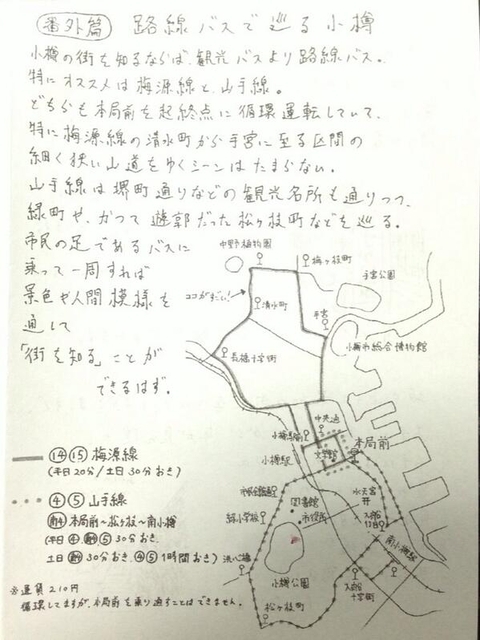 番外篇 路線バスで巡る小樽
小樽の街を知るならば、観光バスより路線バス。
特にオススメは梅源線と、山手線。
どちらも本局前を起終点に循環運転していて、
特に梅源線の清水町から手宮に至る区間の
細く狭い山道をゆくシーンはたまらない。
山手線は堺町通りなどの観光名所も通りつつ、
緑町や、かつて遊郭だった松ヶ枝町などを巡る。
市民の足であるバスに
乗って一周すれば
景色や人間模様を
通して
「街を知る」ことが
できるはず。
中野植物園
梅ヶ枝町
手宮公園
ココがすごい!
清水町
手宮
小樽市総合博物館
長橋十字街
中央通
小樽駅前
本局前
小樽駅
文学館
⑭⑮ 梅源線
(平日20分/土日30分おき)
④⑤ 山手線
本局前〜松ヶ枝〜南小樽
(平日④ ⑤30分おき
土日 30分おき、④⑤1時間おき)
図書館
市役所
水天宮
緑小学校
入船
南小樽駅
洗心橋
小樽公園
入船十字街
松ヶ枝町
※運賃210円
循環してますが、本局前を乗り通すことはできません。